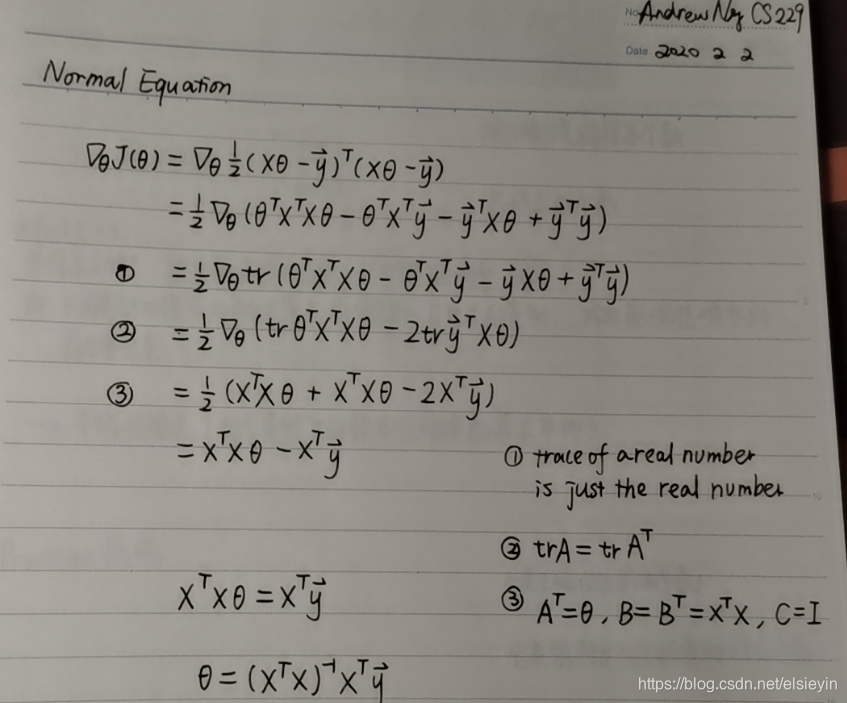 No. Andrew Ng CS229
Date 2020 2 2
Normal Equation
∇θJ(θ) = ∇θ ½(Xθ - y⃗)ᵀ(Xθ - y⃗)
= ½ ∇θ (θᵀXᵀXθ - θᵀXᵀy⃗ - y⃗ᵀXθ + y⃗ᵀy⃗)
① = ½ ∇θ tr (θᵀXᵀXθ - θᵀXᵀy⃗ - y⃗Xθ + y⃗ᵀy⃗)
② = ½ ∇θ (tr θᵀXᵀXθ - 2tr y⃗ᵀXθ)
③ = ½ (XᵀXθ + XᵀXθ - 2Xᵀy⃗)
= XᵀXθ - Xᵀy⃗
① trace of a real number
is just the real number
② trA = tr Aᵀ
③ Aᵀ=θ, B=Bᵀ=XᵀX, C=I
XᵀXθ = Xᵀy⃗
θ = (XᵀX)⁻¹Xᵀy⃗
https://blog.csdn.net/elsieyin